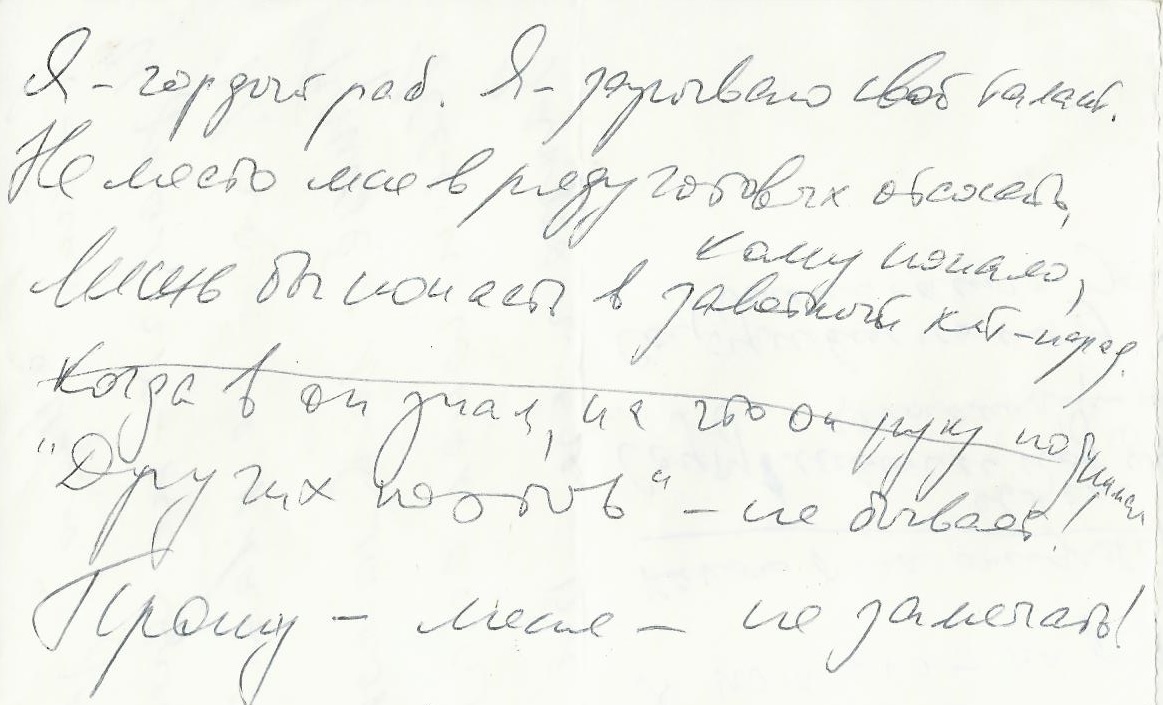 Я – гордый раб. Я – зарываю свой талант.
Не место мне в ряду готовых отсосать,
кому попало,
Лишь бы попасть в заветный хит-парад.
Когда б он знал, на что он руку поднимал
"Других поэтов" – не бывает!
Прошу – меня – не замечать!